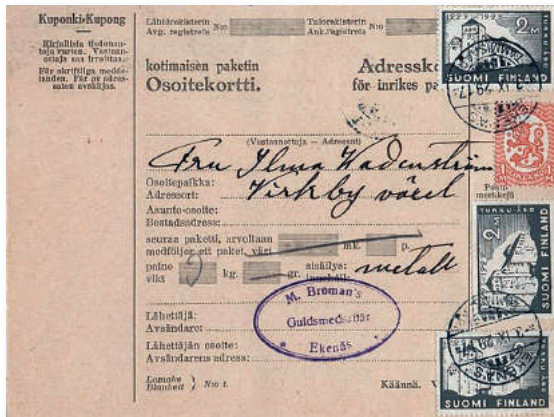 Kuponki-Kupong
Kirjallisia tiedonan-
toja varten. Vastaan-
ottaja saa irroittaa.
För skriftliga medde-
landen. Får av adres-
saten avskiljas.
Lähtörekisterin
Avg. registrets N:o
Tulorekisterin
Ank. registrets N:o
kotimaisen paketin
Osoitekortti.
Adressko
för inrikes pa
(Vastaanottaja — Adressent)
Fru Ilma Wadenström
Osoitepaikka:
Adressort:
Virkby
Asunto-osoite:
Bostadsadress:
Posti-
merkkejä
seuraa paketti, arvoltaan
medföljer ett paket, värt
mk.
p.
paino
vikt
2
kg.
gr.
sisällys:
innehåll:
metall
Lähettäjä:
Avsändare:
Lähettäjän osoite:
Avsändarens adress:
M. Broman's
Guldsmedsaffär
Ekenäs
Lomake
Blankett
N:o 1.
Käännä. V
1229-1929
2 M
SUOMI FINLAND
EKENÄS
1 M
TURKU ÅBO
2 M
SUOMI FINLAND
EKENÄS
SUOMI FINLAND